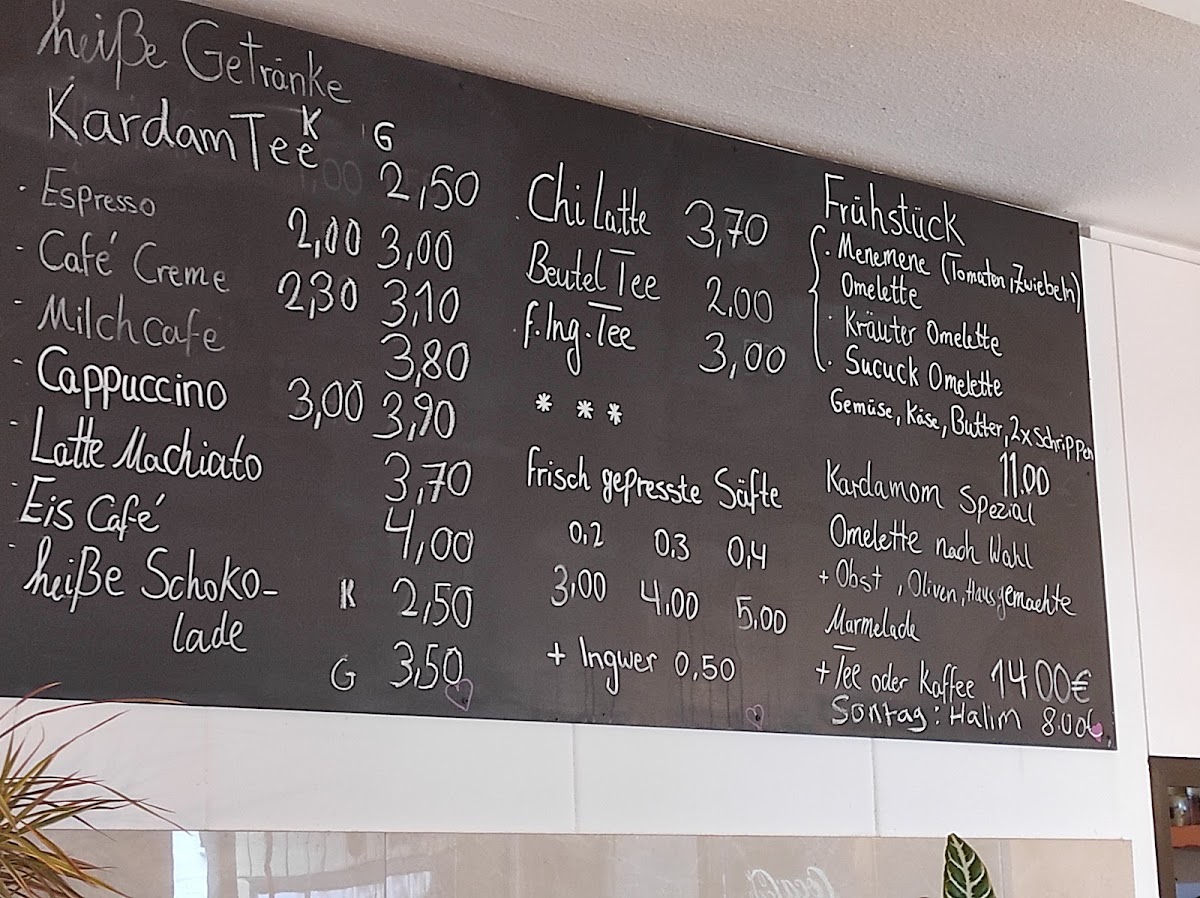 heiße Getränke
K G
KardamTee 2,50
· Espresso 2,00 3,00
· Café Creme 2,30 3,10
· Milchcafe 3,80
· Cappuccino 3,00 3,90
· Latte Machiato 3,70
· Eis Café 4,00
· heiße Schoko- K 2,50
lade G 3,50
· Chi Latte 3,70
Beutel Tee 2,00
· f. Ing. Tee 3,00
* * *
Frisch gepresste Säfte
0,2 0,3 0,4
3,00 4,00 5,00
+ Ingwer 0,50
Frühstück
· Menemene (Tomaten, Zwiebeln)
Omelette
· Kräuter Omelette
· Sucuck Omelette
Gemüse, Käse, Butter, 2x Schrippen
11.00
Kardamom Spezial
Omelette nach Wahl
+ Obst, Oliven, Hausgemachte
Marmelade
+ Tee oder Kaffee 14 00€
Sontag: Halim 8.00€